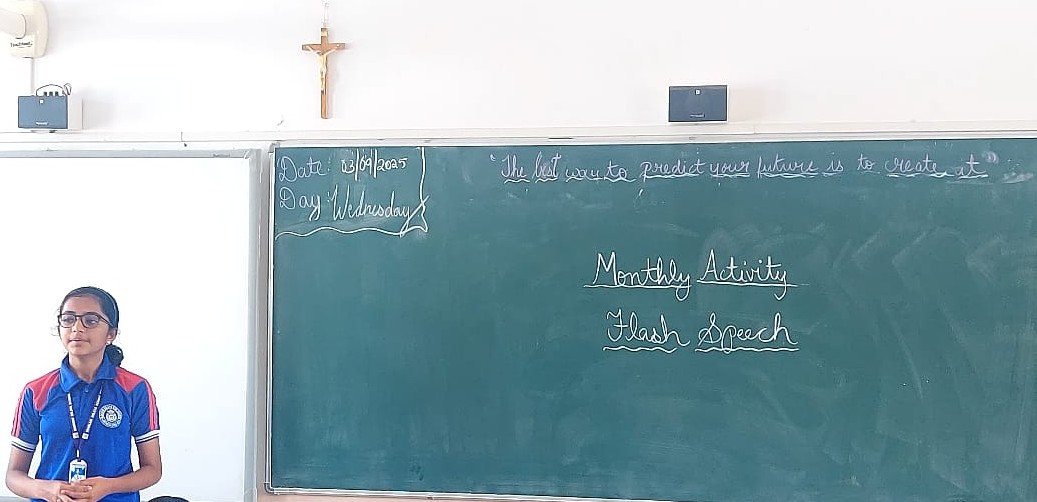 Date: 03/09/2025
Day: Wednesday
"The best way to predict your future is to create it"
Monthly Activity
Flash Speech